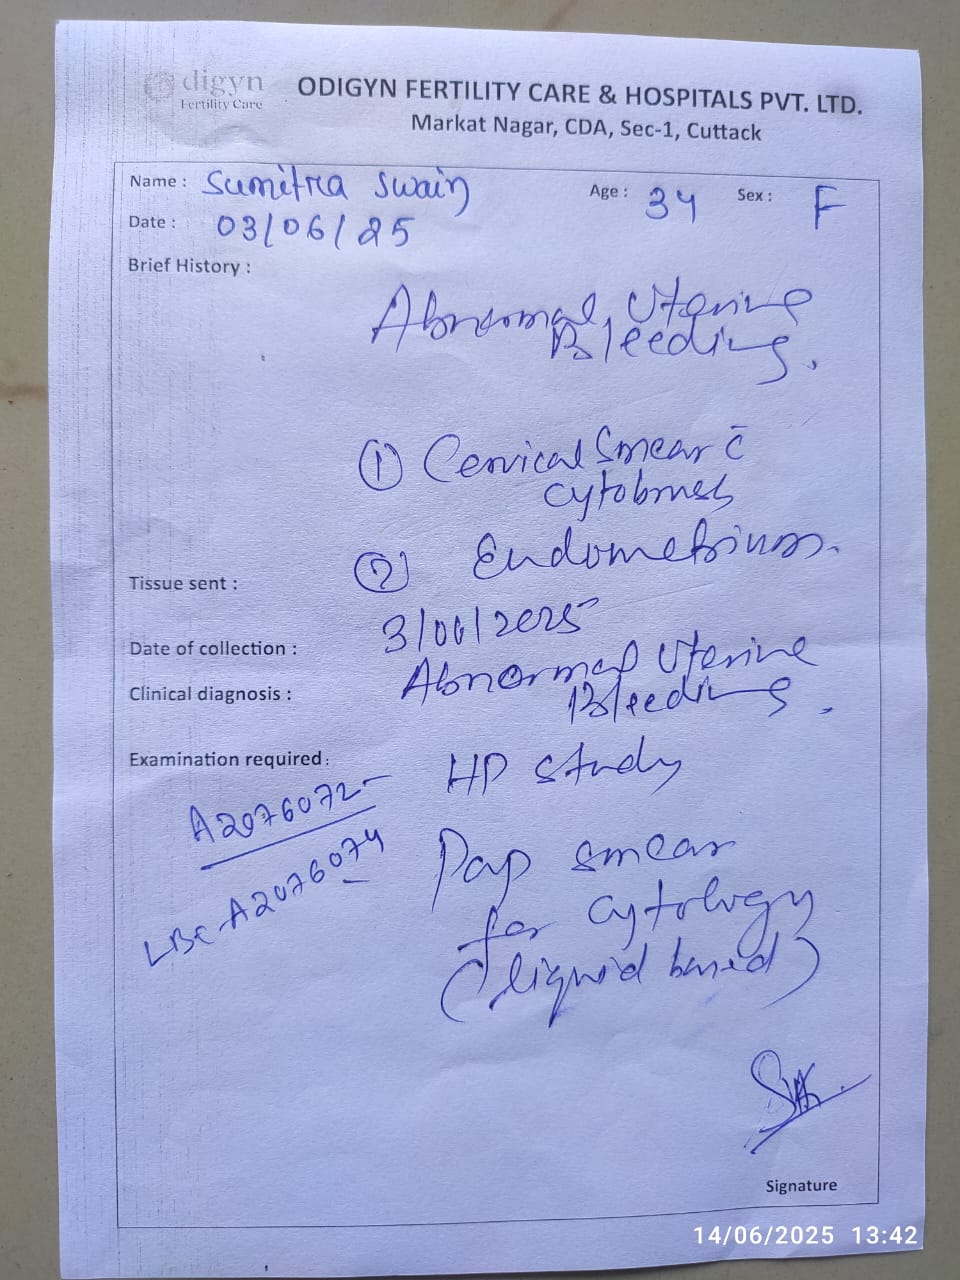 digyn
Fertility Care
ODIGYN FERTILITY CARE & HOSPITALS PVT. LTD.
Markat Nagar, CDA, Sec-1, Cuttack
Name : Sumitra Swain Age : 34 Sex : F
Date : 03/06/25
Brief History :
Abnormal Uterine
Bleeding.
① Cervical Smear c̄
cytobrush
② Endometrium.
Tissue sent :
Date of collection : 3/06/2025
Clinical diagnosis : Abnormal Uterine
Bleeding.
Examination required : HP study
A2076072
Pap smear
LBC-A2076074
for cytology
(liquid based)
Signature
14/06/2025 13:42